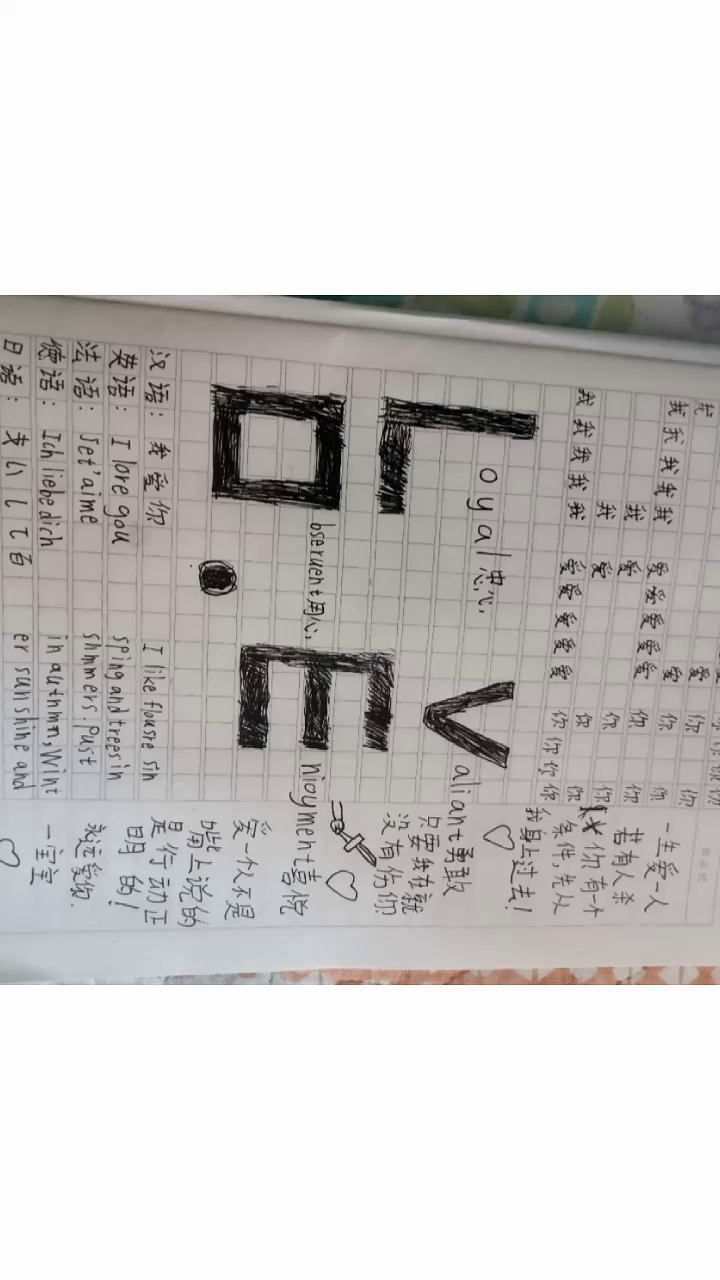 我 爱 你
我我我我我 爱 你 你
我 爱爱爱爱爱 你
我 爱 你 你
我我我我我 爱 你 你
爱爱爱爱爱 你你你你
一生爱一人
若有人杀
你有一个
条件,先从
我身上过去!
Loyal忠心,
Valiant勇敢
只要我在就
没有伤你
Observent用心,
Enioyment喜悦
爱一个人不是
嘴上说的
是行动正
明的!
永远爱你.
一宝宝
汉语:我爱你
英语:I love you
法语:Jet'aime
德语:Ich liebe dich
日语:
I like flousre sin
sping and trees in
shmmers. Pust
in authmn, Wint
er sunshine and